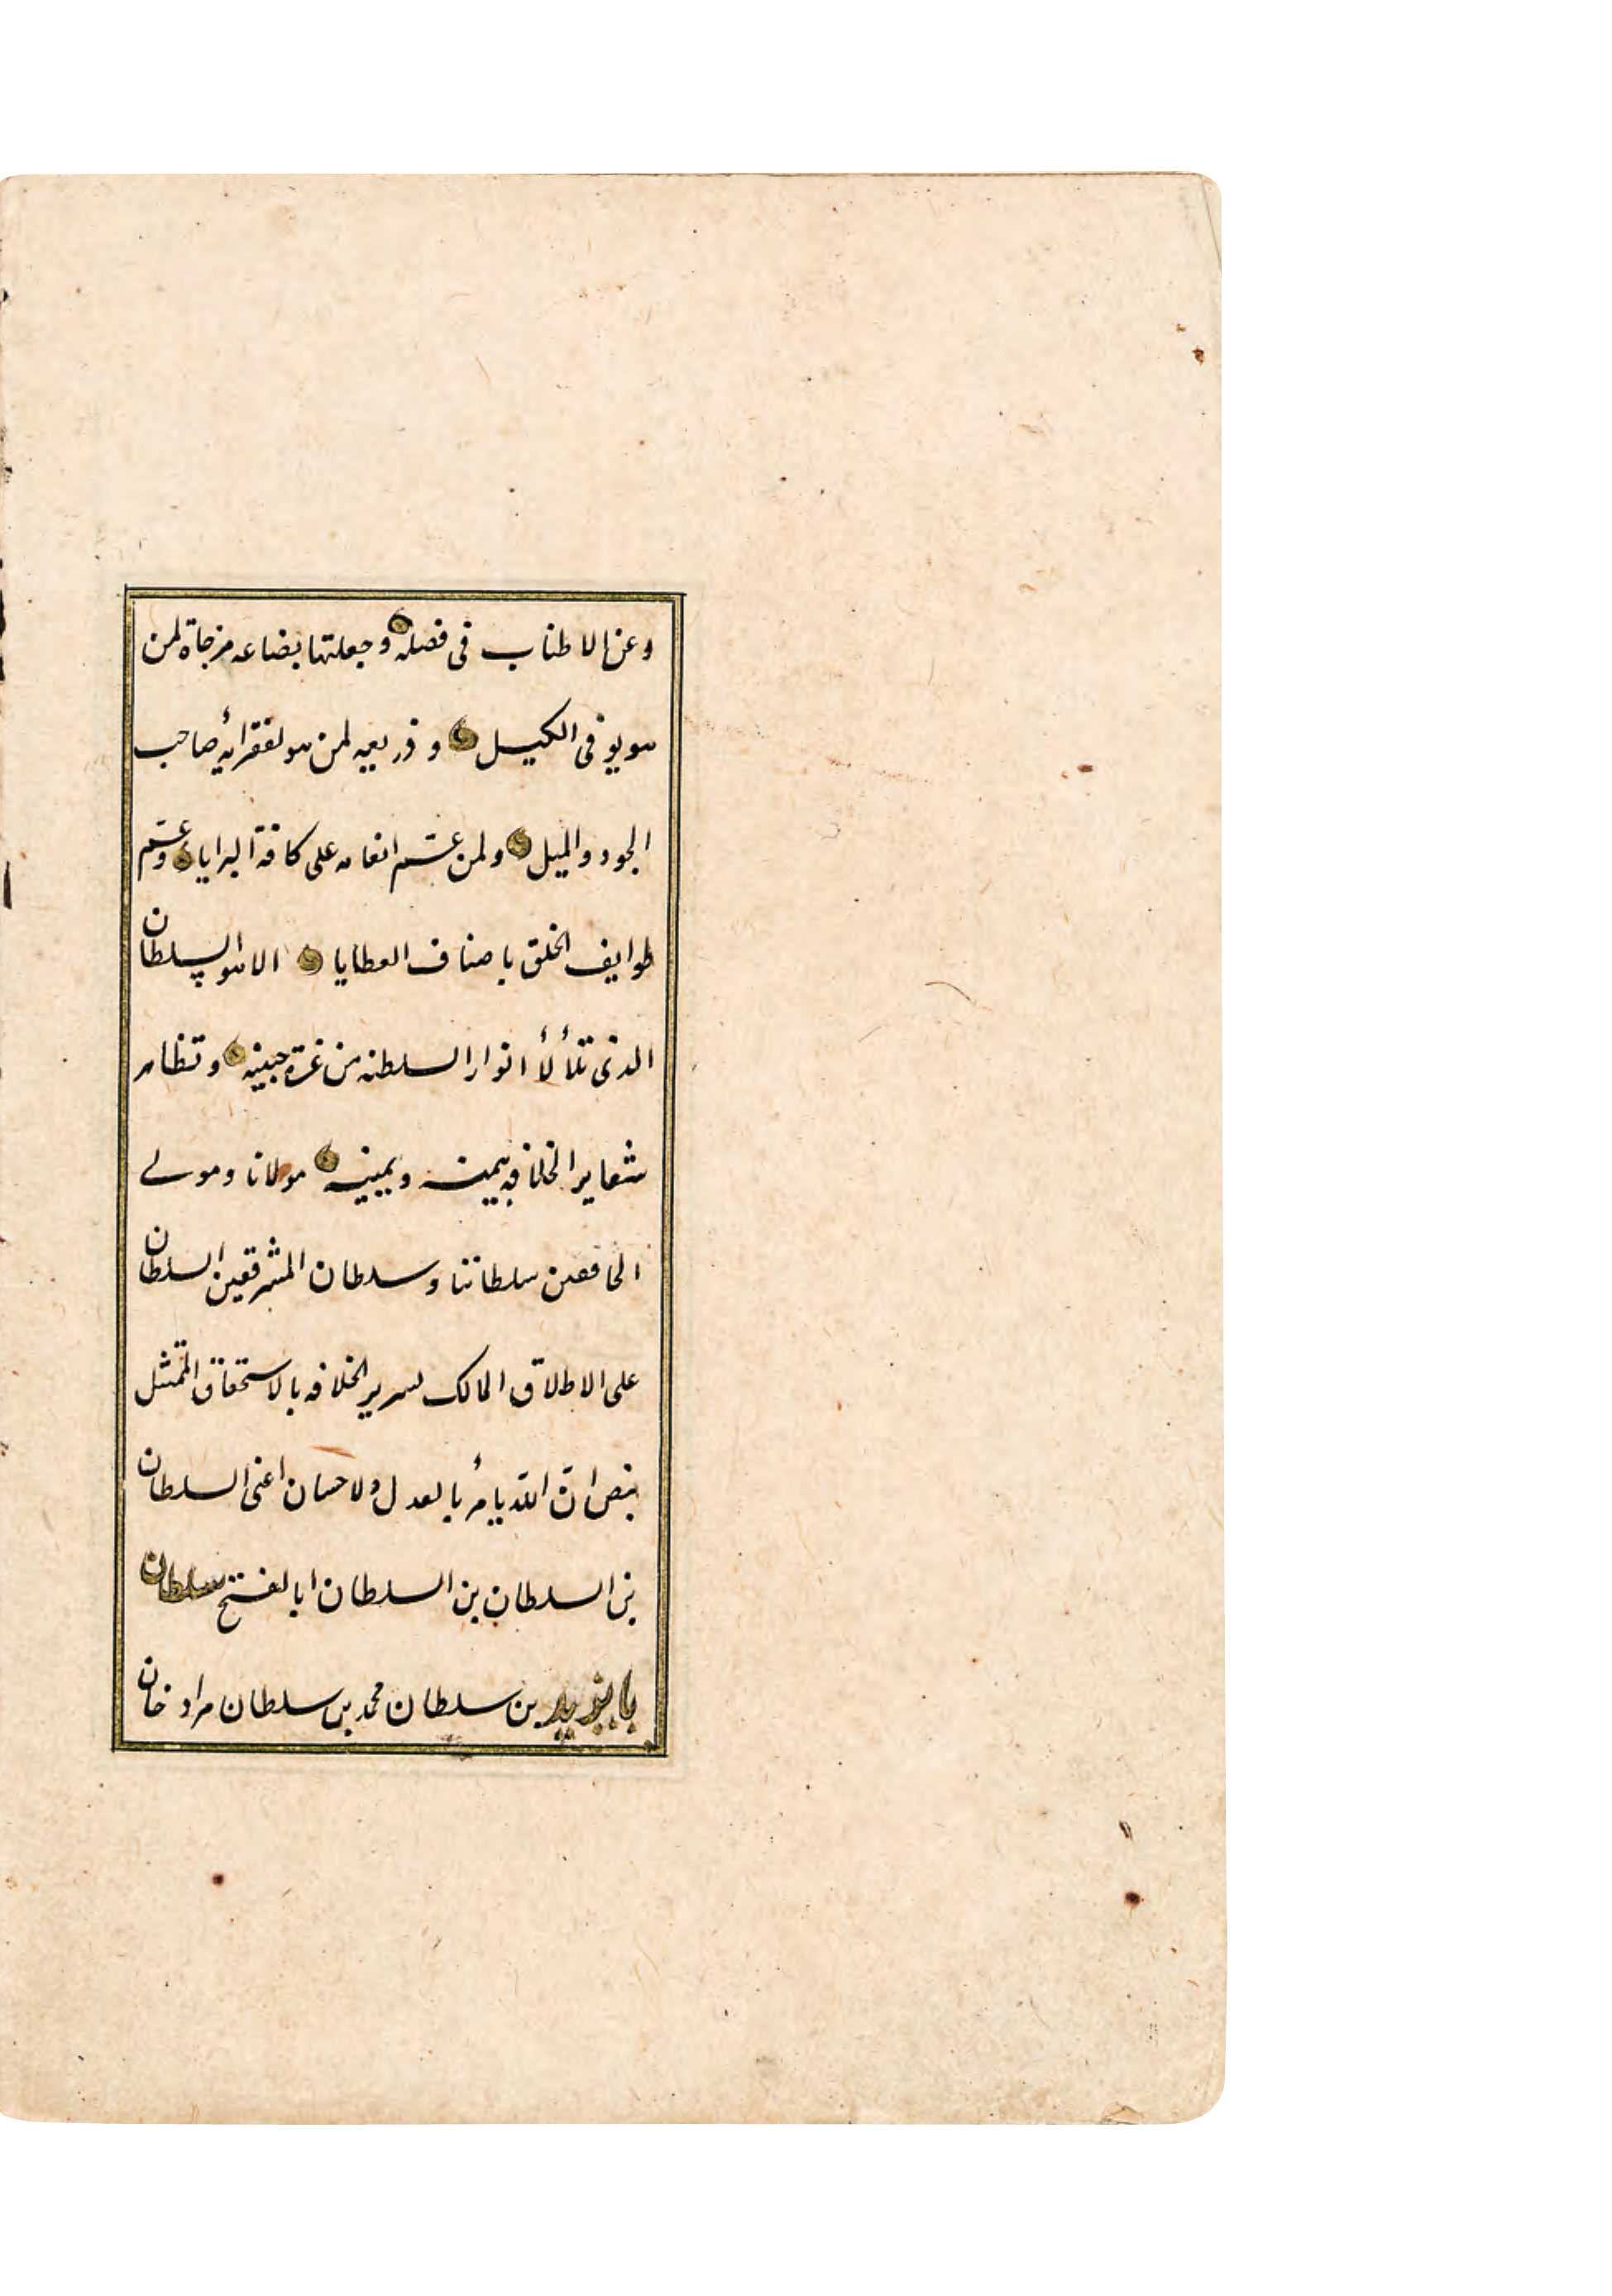 وعن الاطناب فى فصله وجعلتها بضاعه مزجاة لمن
هو يوفى الكيل وذريعه لمن هو لفقرائه صاحب
الجود والميل ولمن عمّ انعامه على كافة البرايا وعمّ
طوايف الخلق باصناف العطايا الا هو السلطان
الذى تلألأ انوار السلطنه من غرة جبينه وتظاهر
شعاير الخلافه بيمنه ويمينه مولانا ومولى
الخافقين سلطاننا وسلطان المشرقين السلطان
على الاطلاق المالك لسرير الخلافه بالاستحقاق الممتثل
بنص ان الله يأمر بالعدل ولاحسان اعنى السلطان
بن السلطان بن السلطان ابا لفتح سلطان
بايزيد بن سلطان محمد بن سلطان مراد خان